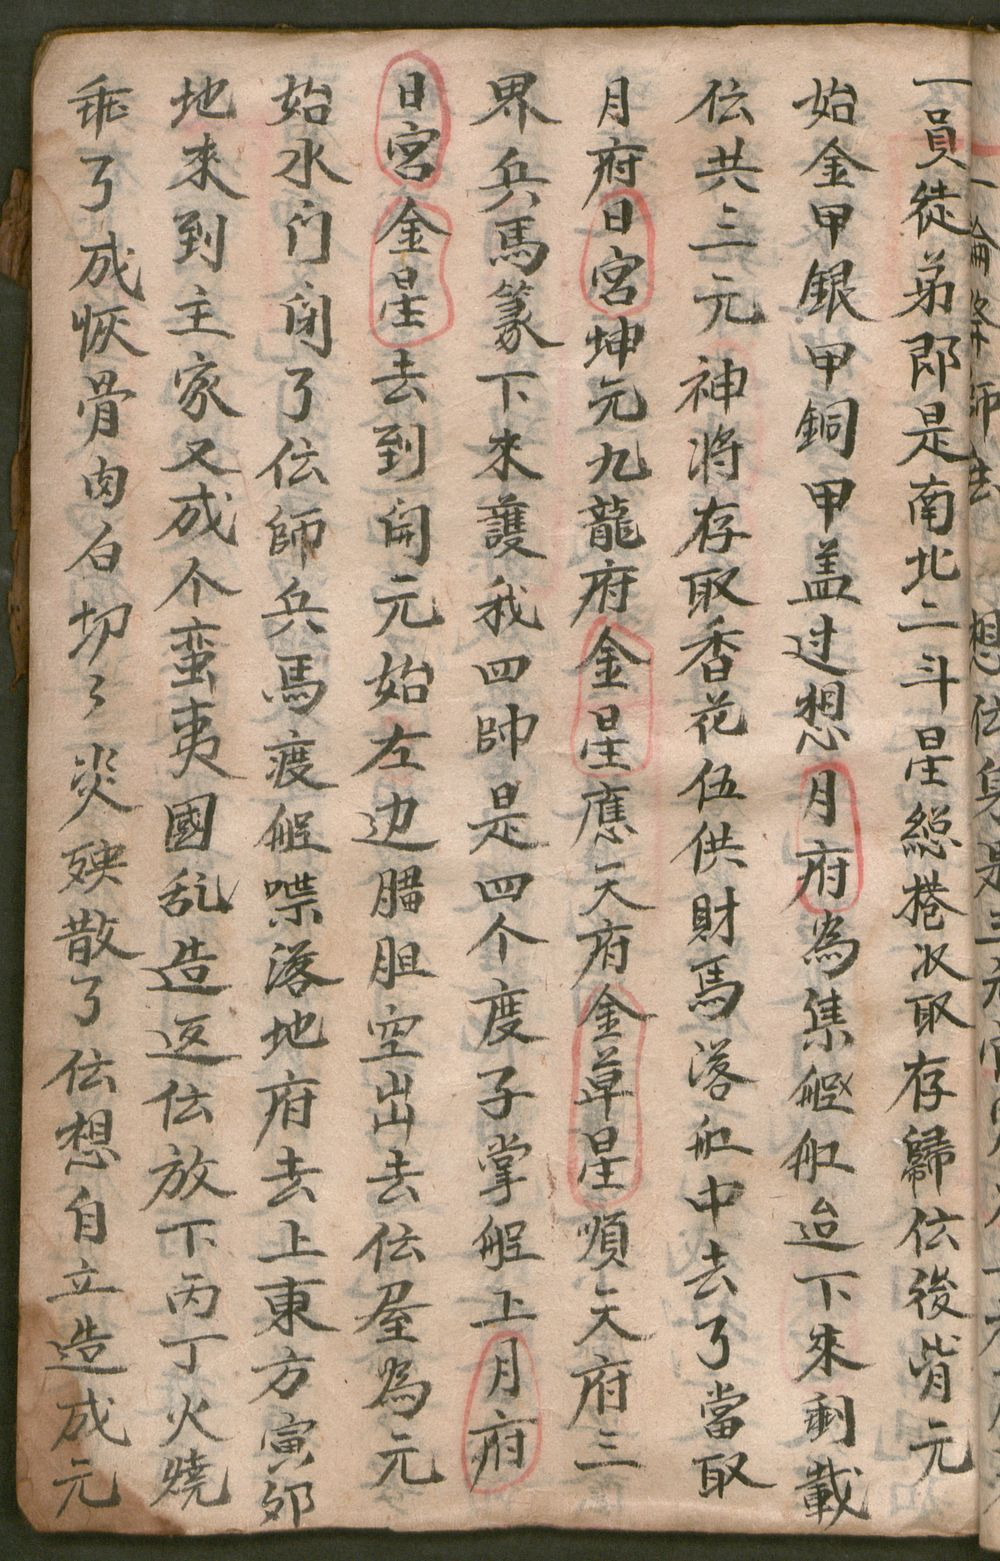 一員徒弟郎是南北二斗星総捲収取存歸伝後背元
始金甲銀甲銅甲盖过想月府為集船舡迨下來剩載
伝共三元神将存取香花伍供財馬落舡中去了當取
月府日宮坤元九龍府金星應天府金草星順天府三
界兵馬篆下來護我四帥是四个度子掌船上月府
日宮金星去到開元始左边腸胆空出去伝屋為元
始水门闭了伝師兵馬渡船喋落地府去上東方寅卯
地來到主家又成个蛮夷國乱造返伝放下丙丁火燒
乖了成恢骨肉白切々炎殃散了伝想自立造成元